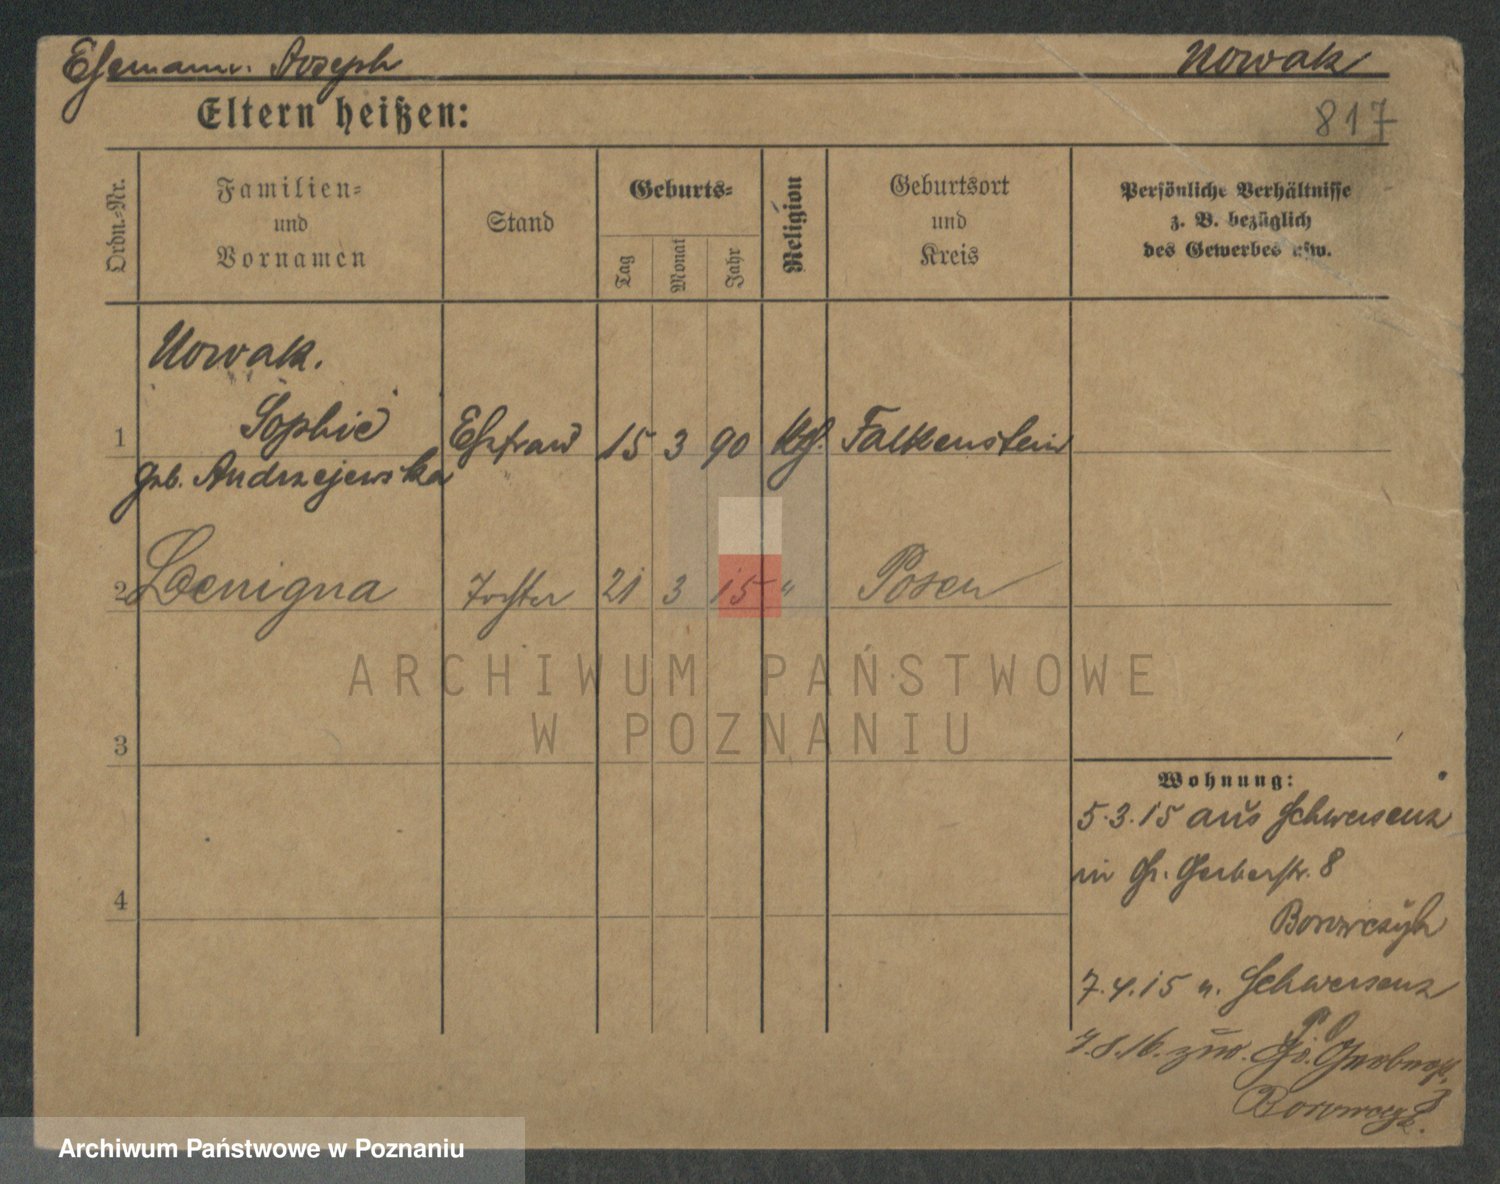 Ehemann. Joseph Nowak
Eltern heißen:
817
Ordn.-Nr.
Familien-
und
Vornamen
Stand
Geburts-
Tag
Monat
Jahr
Religion
Geburtsort
und
Kreis
Persönliche Verhältnisse
z. B. bezüglich
des Gewerbes usw.
Nowak.
1 Sophie Ehefrau 15 3 90 kth. Falkenstein
geb. Andrzejewska
2 Benigna Tochter 21 3 15 " Posen
ARCHIWUM PAŃSTWOWE
W POZNANIU
3
Wohnung:
5.3.15 aus Schwersenz
in Gr. Gerberstr. 8
Borowczyk
4
7.4.15 n. Schwersenz
7.8.16. zur. Gr. Gerberstr. 8
Borowczyk.
Archiwum Państwowe w Poznaniu